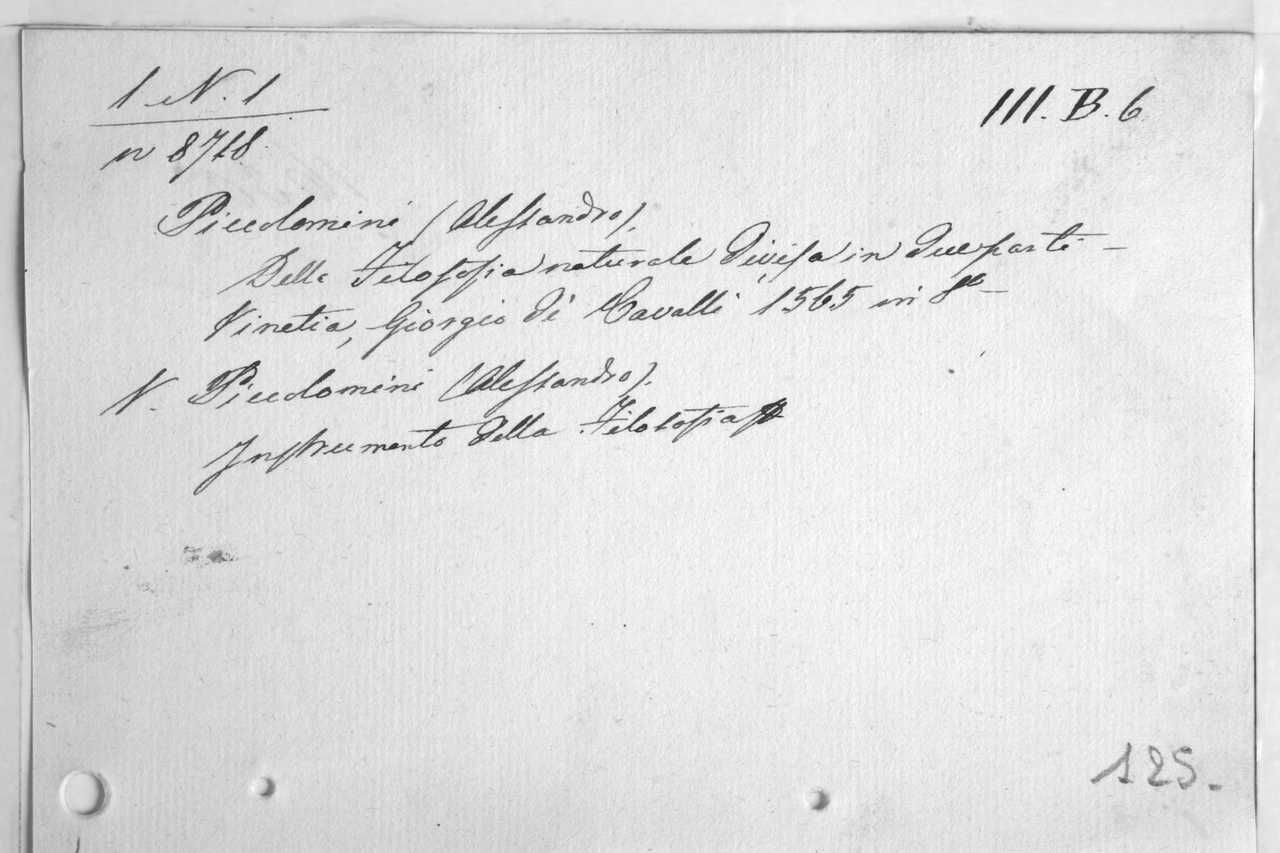 1 N. 1
III. B. 6
n 8718.
Piccolomini (Alessandro).
Della Filosofia naturale divisa in due parti –
Vinetia, Giorgio di Cavalli 1565 in 8º –
N. Piccolomini (Alessandro).
Instrumento della Filosofia
125.